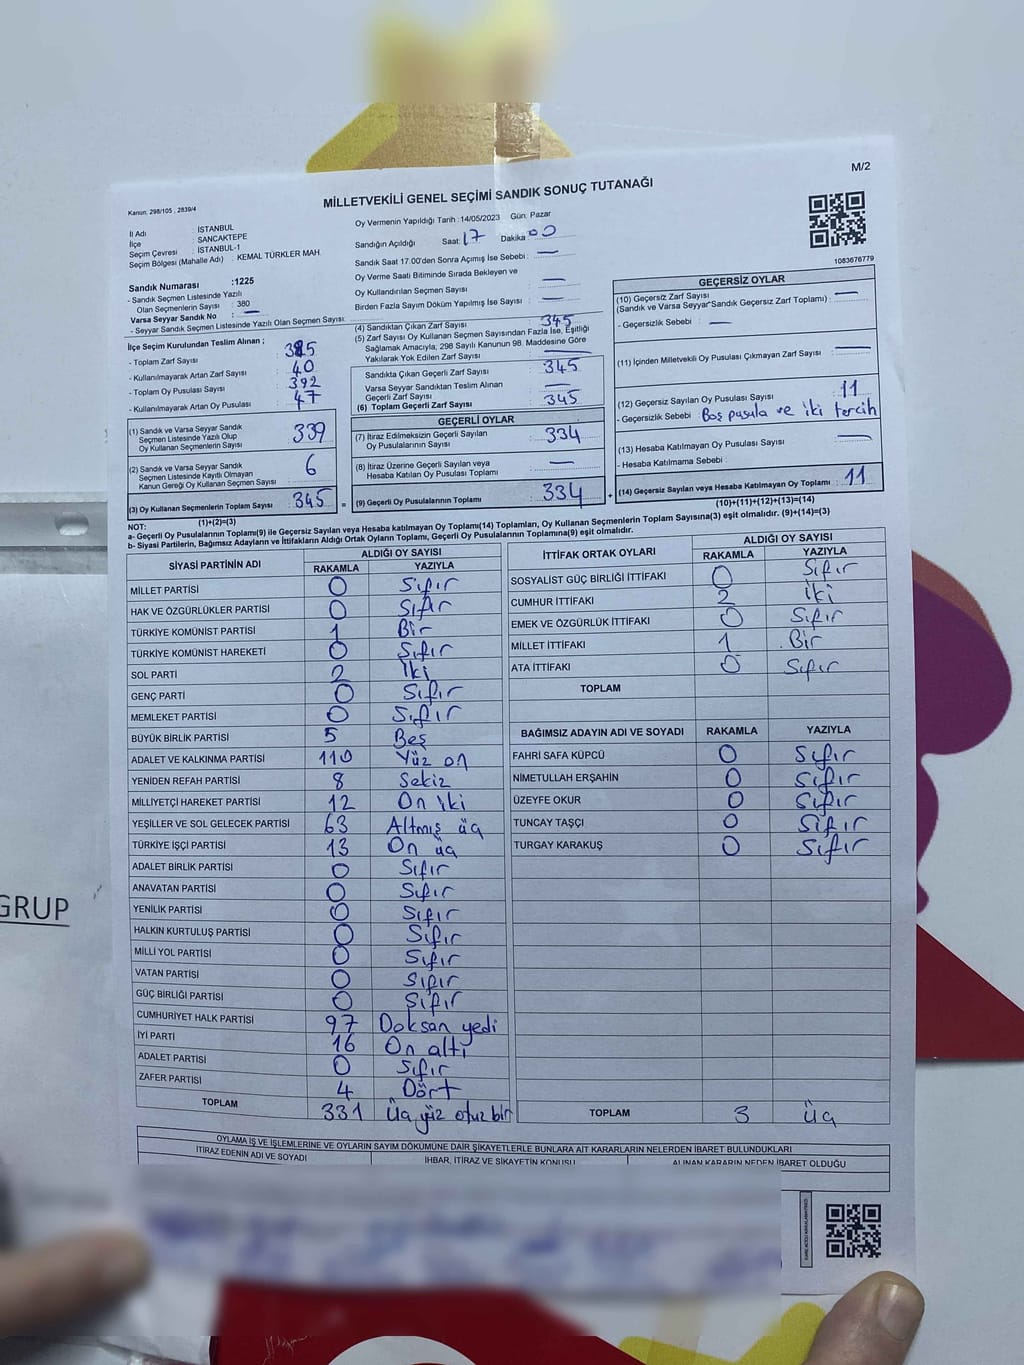 M/2
Kanun: 298/105 , 2839/4
MİLLETVEKİLİ GENEL SEÇİMİ SANDIK SONUÇ TUTANAĞI
İl Adı : İSTANBUL
İlçe : SANCAKTEPE
Seçim Çevresi : İSTANBUL-1
Seçim Bölgesi (Mahalle Adı) : KEMAL TÜRKLER MAH
Sandık Numarası :1225
- Sandık Seçmen Listesinde Yazılı
Olan Seçmenlerin Sayısı : 380
Varsa Seyyar Sandık No : —
- Seyyar Sandık Seçmen Listesinde Yazılı Olan Seçmen Sayısı:
Oy Vermenin Yapıldığı Tarih :14/05/2023 Gün: Pazar
Sandığın Açıldığı Saat: 17 Dakika: 00
Sandık Saat 17.00'den Sonra Açılmış İse Sebebi : —
Oy Verme Saati Bitiminde Sırada Bekleyen ve
Oy Kullandırılan Seçmen Sayısı : —
Birden Fazla Sayım Döküm Yapılmış İse Sayısı : —
1083676779
İlçe Seçim Kurulundan Teslim Alınan ;
- Toplam Zarf Sayısı : 385
- Kullanılmayarak Artan Zarf Sayısı : 40
- Toplam Oy Pusulası Sayısı : 392
- Kullanılmayarak Artan Oy Pusulası : 47
(1) Sandık ve Varsa Seyyar Sandık
Seçmen Listesinde Yazılı Olup
Oy Kullanan Seçmenlerin Sayısı 339
(2) Sandık ve Varsa Seyyar Sandık
Seçmen Listesinde Kayıtlı Olmayan
Kanun Gereği Oy Kullanan Seçmen Sayısı 6
(3) Oy Kullanan Seçmenlerin Toplam Sayısı : 345 =
(1)+(2)=(3)
(4) Sandıktan Çıkan Zarf Sayısı : 345
(5) Zarf Sayısı Oy Kullanan Seçmen Sayısından Fazla İse, Eşitliği
Sağlamak Amacıyla, 298 Sayılı Kanunun 98. Maddesine Göre
Yakılarak Yok Edilen Zarf Sayısı : —
Sandıkta Çıkan Geçerli Zarf Sayısı : 345
Varsa Seyyar Sandıktan Teslim Alınan
Geçerli Zarf Sayısı : —
(6) Toplam Geçerli Zarf Sayısı : 345
GEÇERLİ OYLAR
(7) İtiraz Edilmeksizin Geçerli Sayılan
Oy Pusulalarının Sayısı : 334
(8) İtiraz Üzerine Geçerli Sayılan veya
Hesaba Katılan Oy Pusulası Toplamı : —
(9) Geçerli Oy Pusulalarının Toplamı : 334 +
GEÇERSİZ OYLAR
(10) Geçersiz Zarf Sayısı
(Sandık ve Varsa Seyyar Sandık Geçersiz Zarf Toplamı) : —
- Geçersizlik Sebebi : —
(11) İçinden Milletvekili Oy Pusulası Çıkmayan Zarf Sayısı : —
(12) Geçersiz Sayılan Oy Pusulası Sayısı : 11
- Geçersizlik Sebebi : Boş pusula ve iki tercih
(13) Hesaba Katılmayan Oy Pusulası Sayısı : —
- Hesaba Katılmama Sebebi :
(14) Geçersiz Sayılan veya Hesaba Katılmayan Oy Toplamı : 11
(10)+(11)+(12)+(13)=(14)
NOT:
a- Geçerli Oy Pusulalarının Toplamı(9) ile Geçersiz Sayılan veya Hesaba katılmayan Oy Toplamı(14) Toplamları, Oy Kullanan Seçmenlerin Toplam Sayısına(3) eşit olmalıdır. (9)+(14)=(3)
b- Siyasi Partilerin, Bağımsız Adayların ve İttifakların Aldığı Ortak Oyların Toplamı, Geçerli Oy Pusulalarının Toplamına(9) eşit olmalıdır.
SİYASİ PARTİNİN ADI ALDIĞI OY SAYISI
RAKAMLA YAZIYLA
MİLLET PARTİSİ 0 Sıfır
HAK VE ÖZGÜRLÜKLER PARTİSİ 0 Sıfır
TÜRKİYE KOMÜNİST PARTİSİ 1 Bir
TÜRKİYE KOMÜNİST HAREKETİ 0 Sıfır
SOL PARTİ 2 İki
GENÇ PARTİ 0 Sıfır
MEMLEKET PARTİSİ 0 Sıfır
BÜYÜK BİRLİK PARTİSİ 5 Beş
ADALET VE KALKINMA PARTİSİ 110 Yüz on
YENİDEN REFAH PARTİSİ 8 Sekiz
MİLLİYETÇİ HAREKET PARTİSİ 12 On iki
YEŞİLLER VE SOL GELECEK PARTİSİ 63 Altmış üç
TÜRKİYE İŞÇİ PARTİSİ 13 On üç
ADALET BİRLİK PARTİSİ 0 Sıfır
ANAVATAN PARTİSİ 0 Sıfır
YENİLİK PARTİSİ 0 Sıfır
HALKIN KURTULUŞ PARTİSİ 0 Sıfır
MİLLİ YOL PARTİSİ 0 Sıfır
VATAN PARTİSİ 0 Sıfır
GÜÇ BİRLİĞİ PARTİSİ 0 Sıfır
CUMHURİYET HALK PARTİSİ 97 Doksan yedi
İYİ PARTİ 16 On altı
ADALET PARTİSİ 0 Sıfır
ZAFER PARTİSİ 4 Dört
TOPLAM 331 Üç yüz otuz bir
İTTİFAK ORTAK OYLARI ALDIĞI OY SAYISI
RAKAMLA YAZIYLA
SOSYALİST GÜÇ BİRLİĞİ İTTİFAKI 0 Sıfır
CUMHUR İTTİFAKI 2 İki
EMEK VE ÖZGÜRLÜK İTTİFAKI 0 Sıfır
MİLLET İTTİFAKI 1 Bir
ATA İTTİFAKI 0 Sıfır
TOPLAM
BAĞIMSIZ ADAYIN ADI VE SOYADI RAKAMLA YAZIYLA
FAHRİ SAFA KÜPCÜ 0 Sıfır
NİMETULLAH ERŞAHİN 0 Sıfır
ÜZEYFE OKUR 0 Sıfır
TUNCAY TAŞÇI 0 Sıfır
TURGAY KARAKUŞ 0 Sıfır
TOPLAM 3 üç
OYLAMA İŞ VE İŞLEMLERİNE VE OYLARIN SAYIM DÖKÜMÜNE DAİR ŞİKAYETLERLE BUNLARA AİT KARARLARIN NELERDEN İBARET BULUNDUKLARI
İTİRAZ EDENİN ADI VE SOYADI İHBAR, İTİRAZ VE ŞİKAYETİN KONUSU ALINAN KARARIN NEDEN İBARET OLDUĞU
GRUP